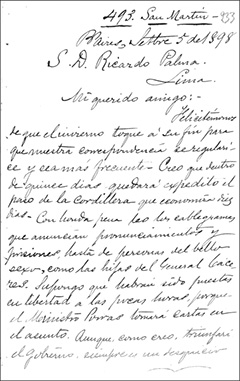 493. San Martín - 933
B. Aires, Setbre 5 de 1898
S. D. Ricardo Palma.
Lima.
Mi querido amigo:-
Felicitémonos
de que el invierno toque a su fin para
que nuestra correspondencia se regulari-
ce y sea mas frecuente - Creo que dentro
de quince dias quedará expedito el
paso de la cordillera que economiza diez
dias - Con honda pena leo los cablegramas
que anuncian pronunciamientos y
prisiones, hasta de personas del bello
sexo, como las hijas del General Cace-
res. Supongo que habran sido puestas
en libertad a las pocas horas, porque
el Ministro Porras tomará cartas en
el asunto. Aunque, como creo, triunfará
el Gobierno, siempre es un desgracia